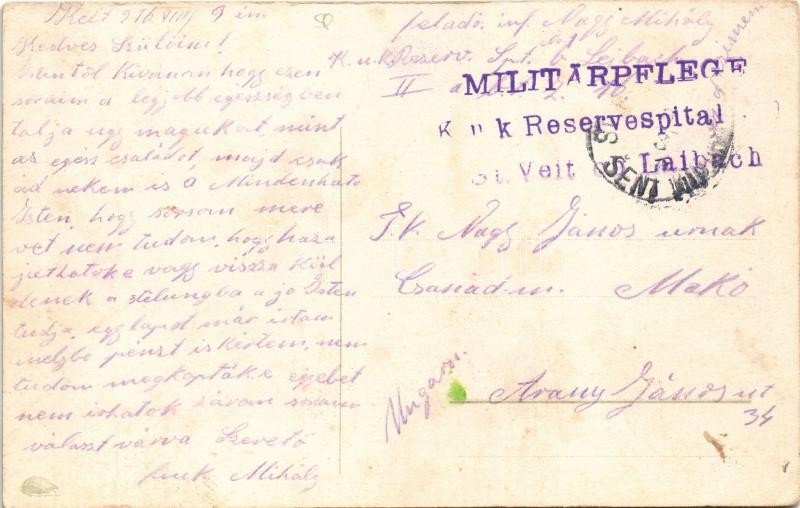 Kelt 916 VIII/9 én
Kedves Szülőim!
Istentől Kivánom hogy ezen
soraim a legjobb egésségben
talja ugy magukat, mint
az egész családot, majd csak
ád nekem is a Mindenható
Isten, hogy sorsom mere
vet nem tudom, hogy haza
juthatoke vagy vissza kül
denek a stelungba a jo Isten
tudja, egy lapot már irtam
melybe pénzt is kértem, nem
tudom megkaptáke egyebet
nem irhatok záram soraim
választ várva Szerető
fiuk Mihály
feladó: inf. Nagy Mihály
K. u. k. Reserv. Spt.
II
MILITÄRPFLEGE
K u k Reservespital
St. Veit Laibach
ŠENT VID
T. K. Nagy János urnak
Csanád m. Makó
Arany János ut
34
Ungarn.